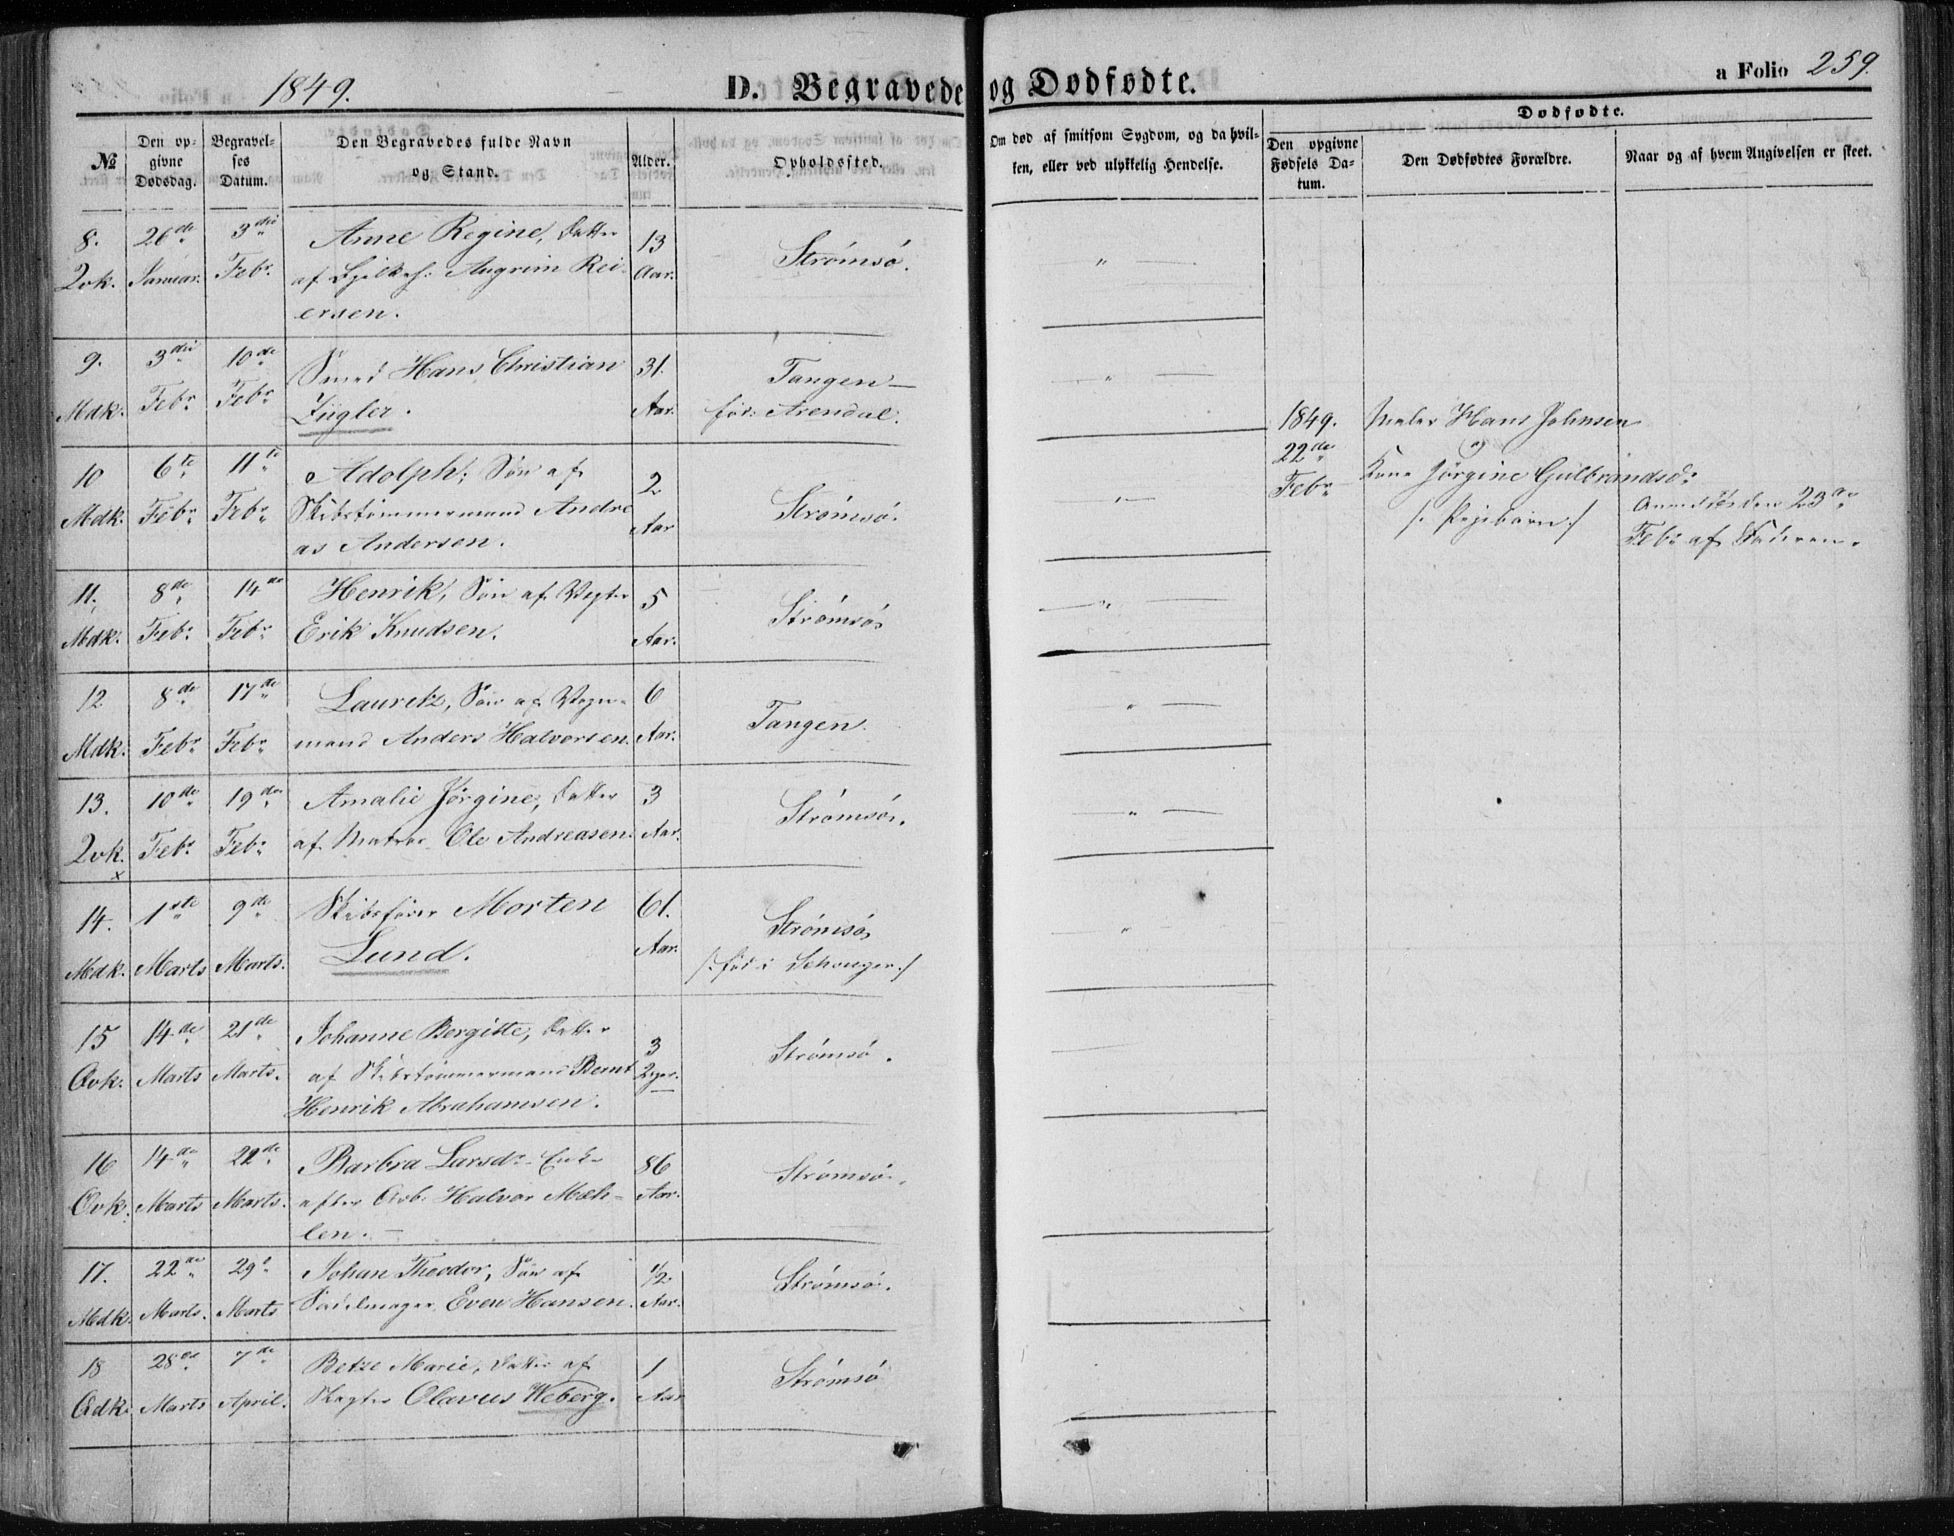 1849.
D. Begravede og Dødfødte.
a Folio 259.
№
Den opgivne Dødsdag.
Begravelses Datum.
Den Begravedes fulde Navn og Stand.
Alder.
Opholdssted.
Om død af smitsom Sygdom, og da hvilken, eller ved ulykkelig Hendelse.
Dødfødte.
Den opgivne Fødsels Datum.
Den Dødfødtes Forældre.
Naar og af hvem Angivelsen er skeet.
8. 26de 3die Anne Regine, Datter 13 Strømsø.
Qvk. Januar. Febr. af Angrim Rei- Aar.
ersen.
9. 3die 10de Smed Hans Christian 31. Tangen —
Mdk. Febr. Febr. Zügler. Aar. fød: Arendal.
10 6te 11te Adolph, Søn af 2 Strømsø.
Mdk. Febr. Febr. Skibstømmermand Andre Aar
as Andersen.
1849. Maler Hans Johnsen
22de og
Febr. Kone Jørgine Gulbrandsd.
/: Pigebarn :/
Anmeldt den 23de
Febr. af Faderen.
11. 8de 14de Henrik, Søn af Vegter 5 Strømsø
Mdk. Febr. Febr. Erik Knudsen. Aar.
12 8de 17de Lauretz, Søn af Vogn- 6 Tangen.
Mdk. Febr. Febr. mand Anders Halvorsen. Aar.
13. 10de 19de Amalie Jørgine, Datter 3 Strømsø.
Qvk. Febr. Febr. af Matros Ole Andreasen. Aar.
x
14. 1ste 9de Skibsfører Morten 61. Strømsø
Mdk. Marts Marts. Lund. Aar. /: fød i :/
15 14de 21de Johanne Bergitte, Datter 3 Strømsø.
Qvk. Marts Marts. af Skibstømmermand Bernt
Henrik Abrahamsen.
16 14de 22de Barbra Larsdr. Enke 86 Strømsø.
Qvk. Marts Marts. efter Arb. Halvor Mæh- Aar.
len. —
17. 22de 29de Johan Theodor, Søn af 1/2 Strømsø.
Mdk. Marts. Marts Sadelmager Even Hansen. Aar.
18 28de 7de Betze Marie, Datter af 1 Strømsø
Qdk. Marts April. Olavus Weberg. Aar